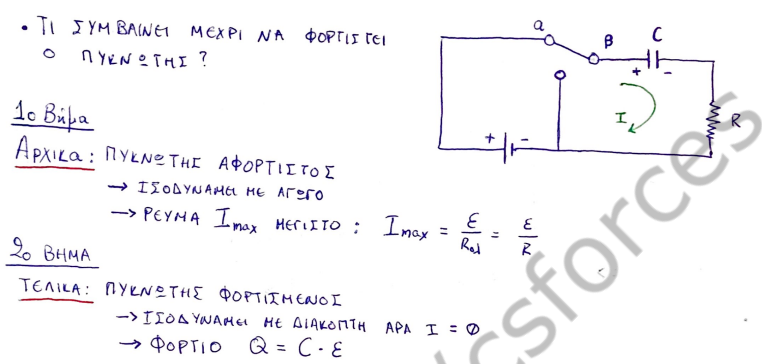 • ΤΙ ΣΥΜΒΑΙΝΕΙ ΜΕΧΡΙ ΝΑ ΦΟΡΤΙΣΤΕΙ
Ο ΠΥΚΝΩΤΗΣ?
α
β
C
+ -
I
R
+ -
1ο Βήμα
ΑΡΧΙΚΑ: ΠΥΚΝΩΤΗΣ ΑΦΟΡΤΙΣΤΟΣ
→ ΙΣΟΔΥΝΑΜΕΙ ΜΕ ΑΓΩΓΟ
→ ΡΕΥΜΑ Imax ΜΕΓΙΣΤΟ: Imax = ε/Rολ = ε/R
2ο ΒΗΜΑ
ΤΕΛΙΚΑ: ΠΥΚΝΩΤΗΣ ΦΟΡΤΙΣΜΕΝΟΣ
→ ΙΣΟΔΥΝΑΜΕΙ ΜΕ ΔΙΑΚΟΠΤΗ ΑΡΑ I = 0
→ ΦΟΡΤΙΟ Q = C · ε
csforces